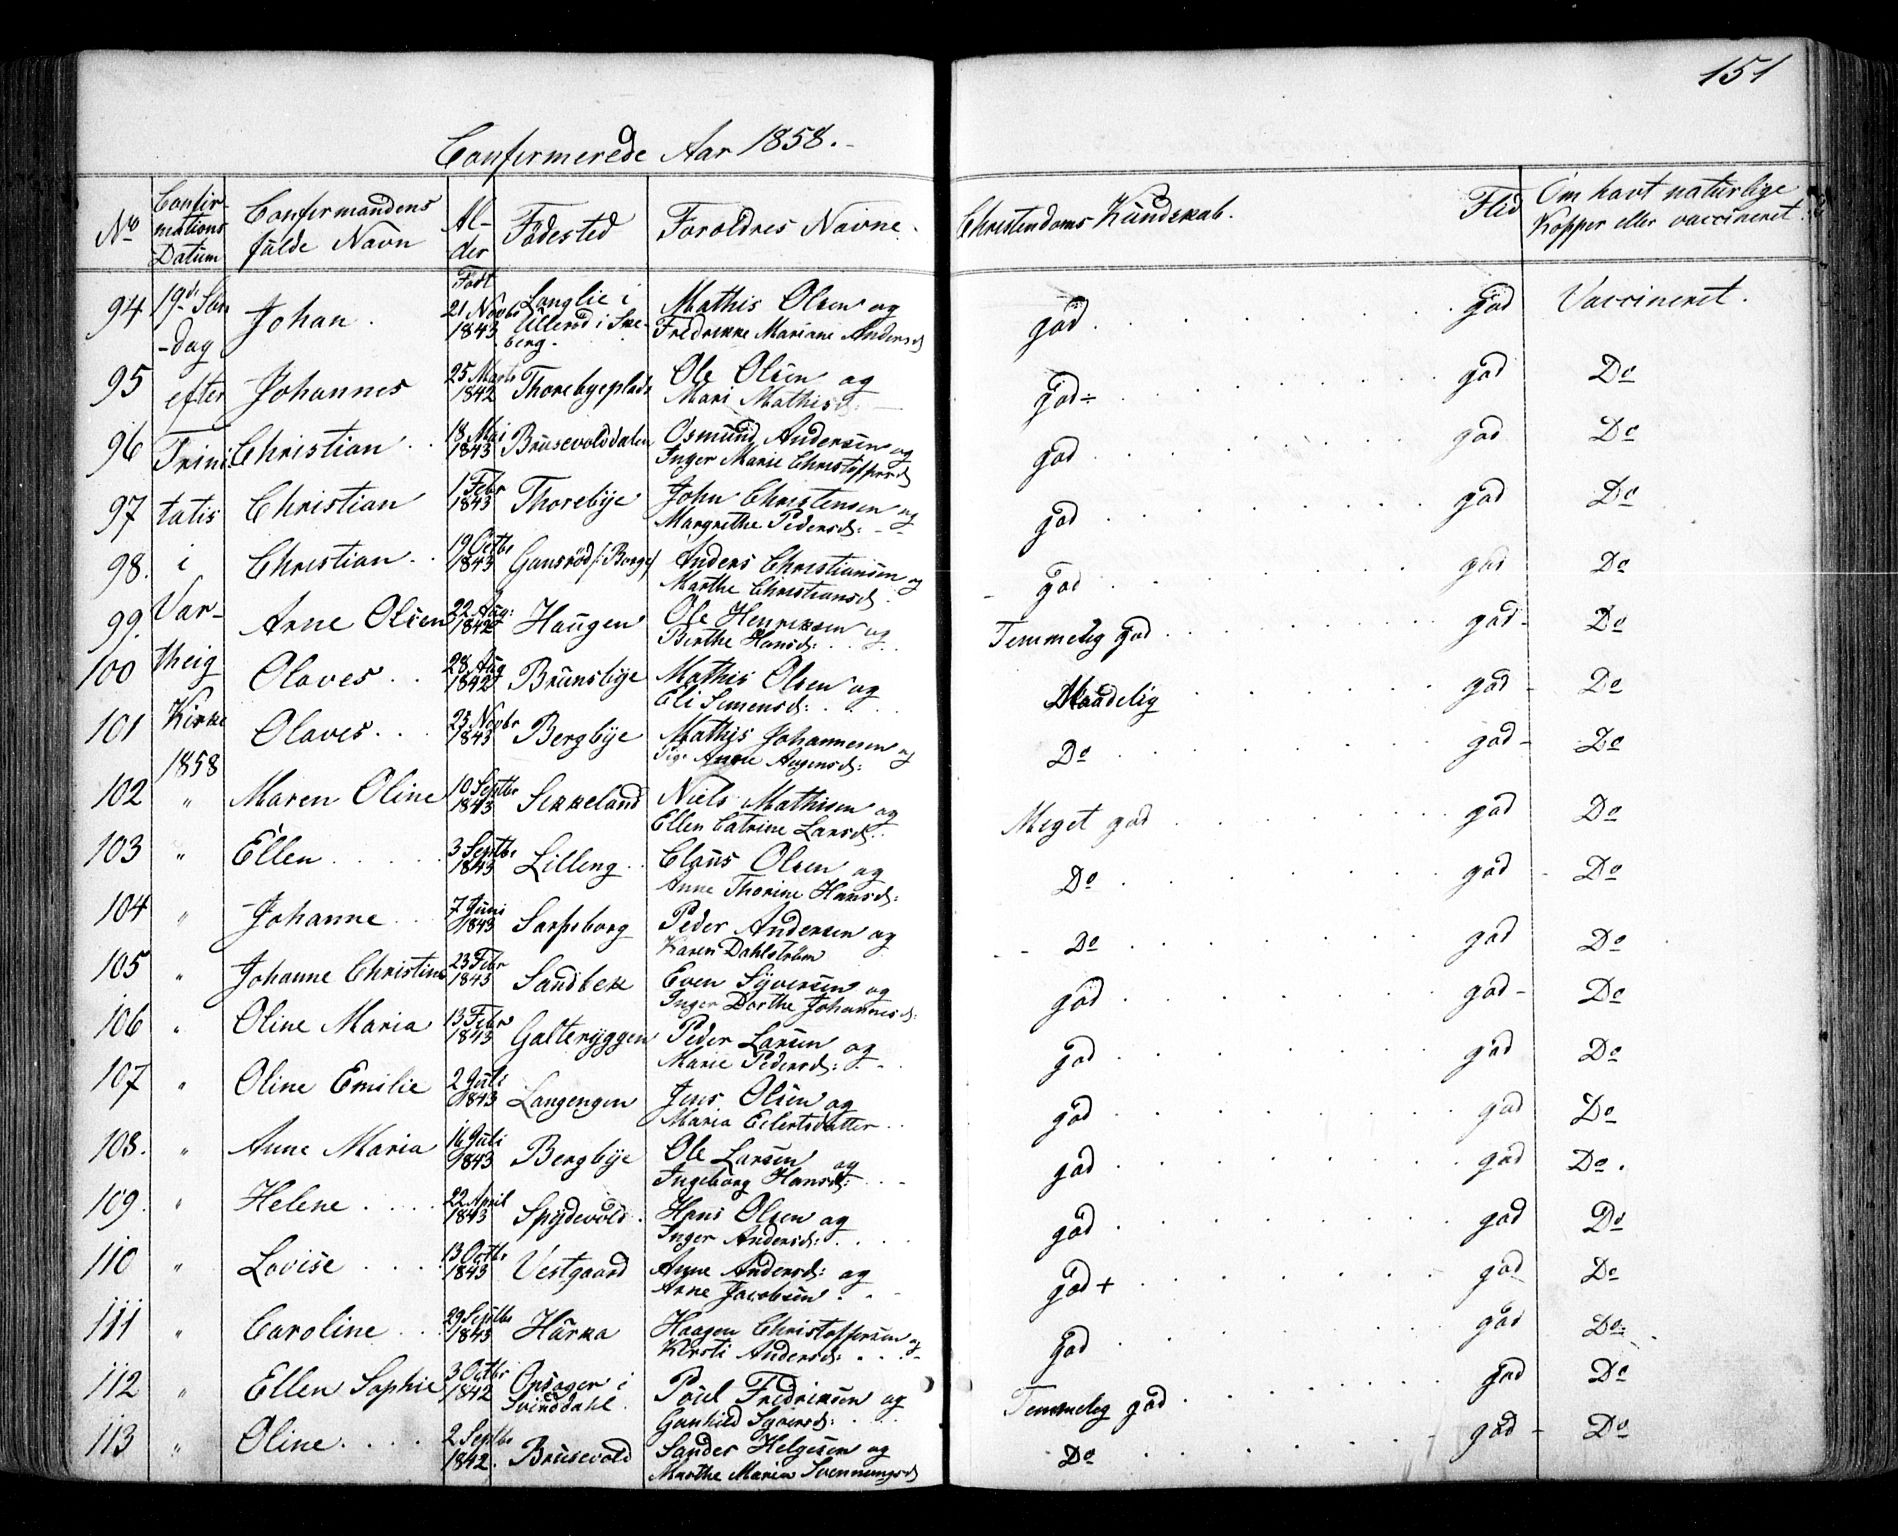 151
Confirmerede Aar 1858.
No | Confirmations Datum | Confirmandens fulde Navn | Alder | Födested | Foroldres Navne | Christendoms Kundskab. | Flid | Om havt naturlige Kopper eller vaccineret.
94 | 19de Søn- | Johan. | Født 21 Novbr 1843 | Langlie i Ullerød i Skeberg. | Mathis Olsen og Fredrikke Mariane Andersd | god | god | Vaccineret.
95 | -dag efter | Johannes | 25 Marts 1842 | Thorebyeplads | Ole Olsen og Mari Mathisd: | god÷ | god | Do
96 | Trini | Christian | 18 Mai 1843 | Brusevolddalen | Osmund Andersen og Inger Marie Christoffersd | god | god | Do
97 | tatis | Christian | 1 Febr 1843 | Thorebye | John Christensen og Margrethe Pedersd: | god | god | Do
98. | i | Christian | 19 Octbr 1843 | Gansrød /: Borge / | Anders Christiansen og Marthe Christiansd. | god | god | Do
99. | Var- | Arne Olsen | 22 Aug: 1842 | Haugen | Ole Henriksen og Birthe Hansd: | Temmelig god | god | Do
100 | theig | Olaves | 28 Aug 1842 | Brunsbye | Mathis Olsen og Eli Simensd: | Maadelig | god | Do
101 | Kirke | Olaves | 25 Novbr 1843 | Bergbye | Mathis Johannesen og Pige Anne Aagensd: | Do | god | Do
102 | 1858 " | Maren Oline | 10 Septbr 1843 | Sekkeland | Niels Mathisen og Ellen Catrine Larsd: | Meget god | god | Do
103 | " | Ellen | 3 Septbr 1843 | Lilleng | Claus Olsen og Anne Thorine Hansd: | Do | god | Do
104 | " | Johanne | 7 Juni 1843 | Sarpsborg | Peder Andersen og Karen Dahlstrøm | Do | god | Do
105 | " | Johanne Christine | 23 Febr 1843 | Sandbek | Even Syversen og Inger Dorthe Johannesd: | god | god | Do
106 | " | Oline Maria | 13 Febr 1843 | Galteryggen | Peder Larsen og Marie Pedersd: | god | god | Do
107 | " | Oline Emilie | 2 Juli 1843 | Langengen | Jens Olsen og Maria Eilertsdatter | god | god | Do
108. | " | Anne Maria | 16 Juli 1843 | Bergbye | Ole Larsen og Ingeborg Hansd: | god | god | Do.
109. | " | Helene | 22 April 1843 | Spydevold | Hans Olsen og Inger Andersd: | god | god | Do
110 | " | Lovise | 13 Octbr 1843 | Vestgaard | Anne Andersd: og Arne Jacobsen | god+ | god | Do
111 | " | Caroline | 29 Septbr 1843 | Hurka | Haagen Christoffersen og Kirsti Andersd: | god | god | Do:
112 | " | Ellen Sophie | 3 Octbr 1842 | Onsager i Svinddahl. | Poul Fredriksen og Gunhild Syversd: | Temmelig god | god | Do
113 | " | Oline | 2 Septbr 1842. | Brusevold | Sander Helgesen og Marthe Maria Svenningsd | Do | god | Do